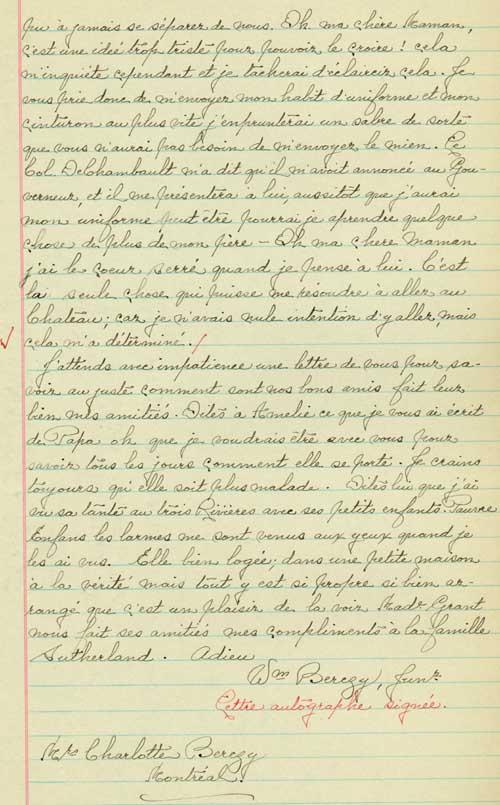 pu à jamais se séparer de nous. Oh ma chère Maman,
c'est une ideé trop triste pour pouvoir le croire! cela
m'inquiéte cependant et je tâcherai d'éclaircir cela. Je
vous prie donc de m'envoyer mon habit d'uniforme et mon
çinturon au plus vite j'enprunterai un sâbre de sorte
que vous n'aurai pas besoin de m'envoyez le mien. Le
Col. DeChambault m'a dit qu'il m'avoit annoncé au Gou-
verneur, et il me présentera à lui aussitot que j'aurai
mon uniforme peut être pourrai je aprendre quelque
chose de plus de mon père — Oh ma chere Maman
j'ai le coeur serré quand je pense à lui. C'est
la seule chose qui puisse me résoudre à aller au
Chateau; car je n'avais nule intention d'y aller, mais
cela m'a déterminé./
J'attends avec impatience une lettre de vous pour sa-
voir au juste comment sont nos bons amis fait leur
bien mes amitiés. Dites à Amelie ce que je vous ai écrit
de Papa oh que je voudrais être avec vous pour
savoir tous les jours comment elle se porte. Je crains
toujours qu'elle soit plus malade. Dites lui que j'ai
vu sa tante au trois Rivières avec ses petits enfants. Pauvre
Enfans les larmes me sont venus aux yeux quand je
les ai vus. Elle bien logée; dans une petite maison
à la vérité mais tout y est si propre si bien ar-
rangé que c'est un plaisir de la voir Madr. Grant
nous fait ses amitiés mes compliments à la famille
Sutherland. Adieu
Wm Berczy, Junr.
Lettre autographe signée.
Mrs Charlotte Berczy
Montréal.